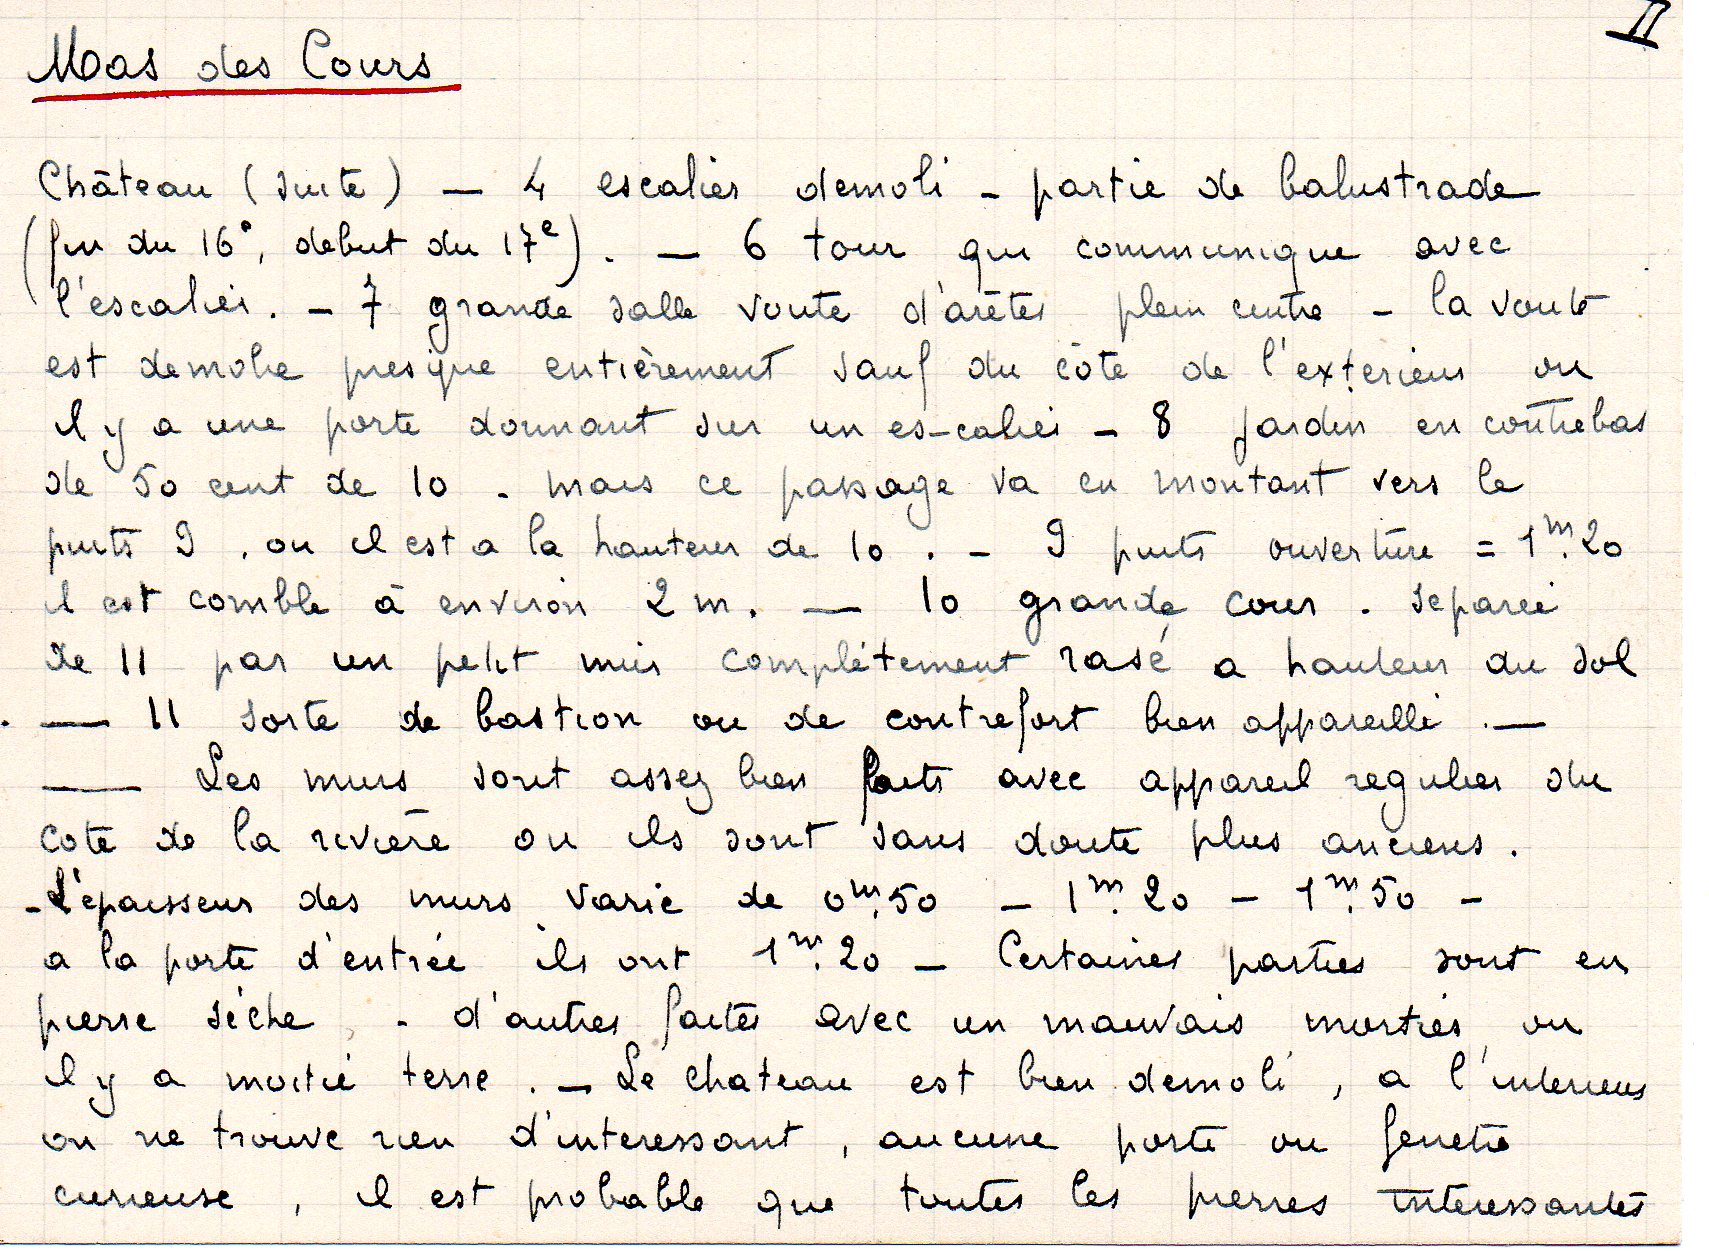 II
Mas des Cours
Château (suite) — 4 escalier demoli - partie de balustrade
(fin du 16e, debut du 17e). — 6 tour qui communique avec
l'escalier. - 7 grande salle voute d'arêtes plein cintre - la voute
est demolie presque entièrement sauf du côte de l'exterieur ou
il y a une porte donnant sur un es-calier - 8 jardin en contrebas
de 50 cent de 10 . mais ce passage va en montant vers le
puits 9 , ou il est a la hauteur de 10 . - 9 puits ouverture = 1m.20
il est comble à environ 2 m. — 10 grande cour . separée
de 11 par un petit mur complétement rasé a hauteur du sol
. — 11 sorte de bastion ou de contrefort bien appareillé . —
— Les murs sont assez bien faits avec appareil regulier du
cote de la riviere ou ils sont sans doute plus anciens .
- L'épaisseur des murs varie de 0m.50 - 1m.20 - 1m.50 -
a la porte d'entrée ils ont 1m.20 - Certaines parties sont en
pierre sèche , - d'autres faites avec un mauvais mortier, ou
il y a moitié terre . - Le chateau est bien demoli , a l'interieur
on ne trouve rien d'interessant , aucune porte ou fenetre
curieuse , il est probable que toutes les pierres interessantes